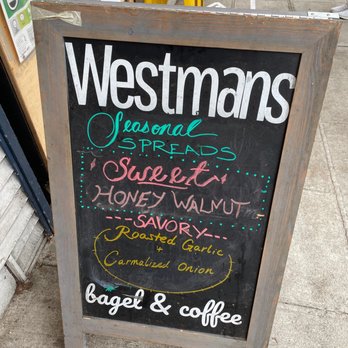 Westmans
Seasonal
SPREADS
Sweet
HONEY WALNUT
---SAVORY---
Roasted Garlic
+
Carmalized Onion
bagel & coffee